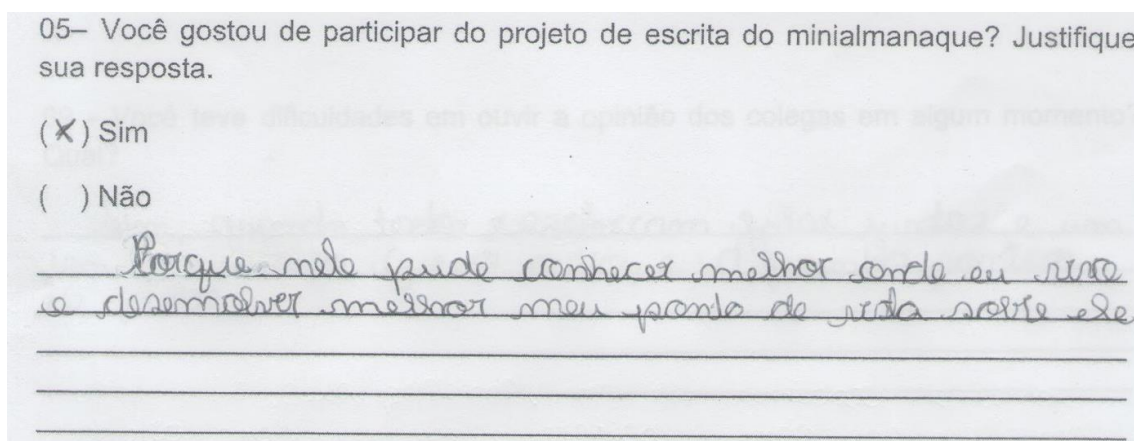 05– Você gostou de participar do projeto de escrita do minialmanaque? Justifique
sua resposta.
(X) Sim
( ) Não
Porque nele pude conhecer melhor onde eu vivo
e desenvolver melhor meu ponto de vista sobre ele